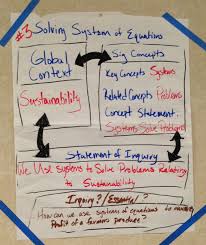 #3 Solving System of Equations
Global
Context
Sustainability
Sig Concepts
Key Concepts Systems
Related Concepts Problems
Concept Statement
Systems Solve Problems
Statement of Inquiry
We Use Systems to Solve Problems Relating
to Sustainability
Inquiry ?/Essential
How can we use systems of equations to
Profit of a farmers produce?